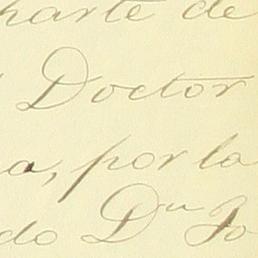 parte de
Doctor
a, por la
do Dn Jo